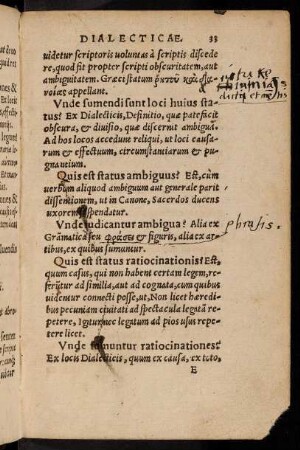 DIALECTICAE. 33
uidetur scriptoris uoluntas à scriptis discede
re, quod fit propter scripti obscuritatem, aut
ambiguitatem. Græci statum ῥητοῦ καὶ
appellant.
Vnde sumendi sunt loci huius sta-
tus? Ex Dialecticis, Definitio, quæ patefacit
obscura, & diuisio, quæ discernit ambigua.
Ad hos locos accedunt reliqui, ut loci causa-
rum & effectuum, circumstantiarum & pu-
gnantium.
Quis est status ambiguus? Est, cùm
uerbum aliquod ambiguum aut generale parit
dissensionem, ut in Canone, Sacerdos ducens
uxorem suspendatur.
Vnde iudicantur ambigua? Alia ex
Grāmatica seu φράσει & figuris, alia ex ar-
tibus, ex quibus sumuntur.
phrasis.
Quis est status ratiocinationis? Est,
quum casus, qui non habent certam legem, re-
feruntur ad similia, aut ad cognata, cum quibus
uidentur connecti posse, ut, Non licet hæredi-
bus pecuniam ciuitati ad spectacula legatā re-
petere, Igitur nec legatum ad pios usus repe-
tere licet.
Vnde sumuntur ratiocinationes?
Ex locis Dialecticis, quum ex causa, ex toto,
E